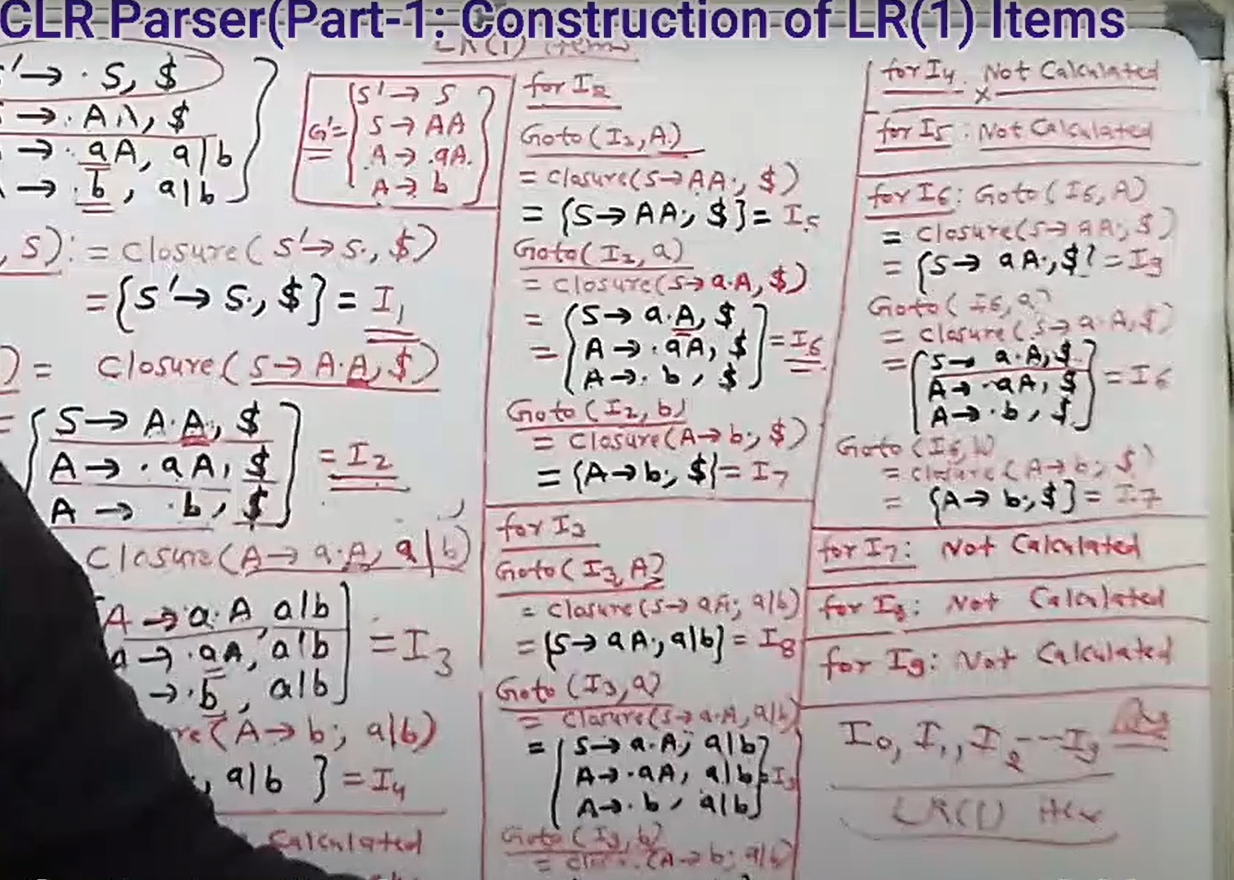 CLR Parser(Part-1: Construction of LR(1) Items
LR(1) items
S'→ ·S, $
→ ·AA, $
→ ·aA, a|b
→ ·b, a|b
G'= { S'→ S
S→ AA
A→ ·aA.
A→ b }
, S): = Closure( S'→ S·, $)
= {S'→ S·, $} = I1
) = Closure( S→ A·A, $)
= { S→ A·A, $
A→ ·aA, $
A→ ·b, $ } = I2
Closure(A→ a·A, a|b)
A→a·A, a|b
→ ·aA, a|b
→ ·b, a|b = I3
(A→b·, a|b)
·, a|b } = I4
Calculated
for I2
Goto(I2, A)
= Closure(S→AA·, $)
= {S→AA·, $} = I5
Goto(I2, a)
= Closure(S→a·A, $)
= { S→ a·A, $
= A→ ·aA, $
A→ ·b, $ } = I6
Goto(I2, b)
= Closure(A→b·, $)
= {A→b·, $} = I7
for I3
Goto(I3, A)
= Closure(S→ aA·, a|b)
= {S→aA·, a|b} = I8
Goto(I3, a)
= Closure(S→a·A, a|b)
= { S→a·A, a|b
A→·aA, a|b
A→·b, a|b } = I3
Goto(I3, b)
(A→b·, a|b)
for I4 x Not Calculated
for I5: Not Calculated
for I6: Goto(I6, A)
= Closure(S→ aA·, $)
= {S→ aA·, $} = I9
Goto(I6, a)
= Closure(S→a·A, $)
= { S→ a·A, $
A→ ·aA, $
A→ ·b, $ } = I6
Goto(I6, b)
= Closure(A→b·, $)
= {A→ b·, $} = I7
for I7: Not Calculated
for I8: Not Calculated
for I9: Not Calculated
I0, I1, I2 --- I9
LR(1) Item